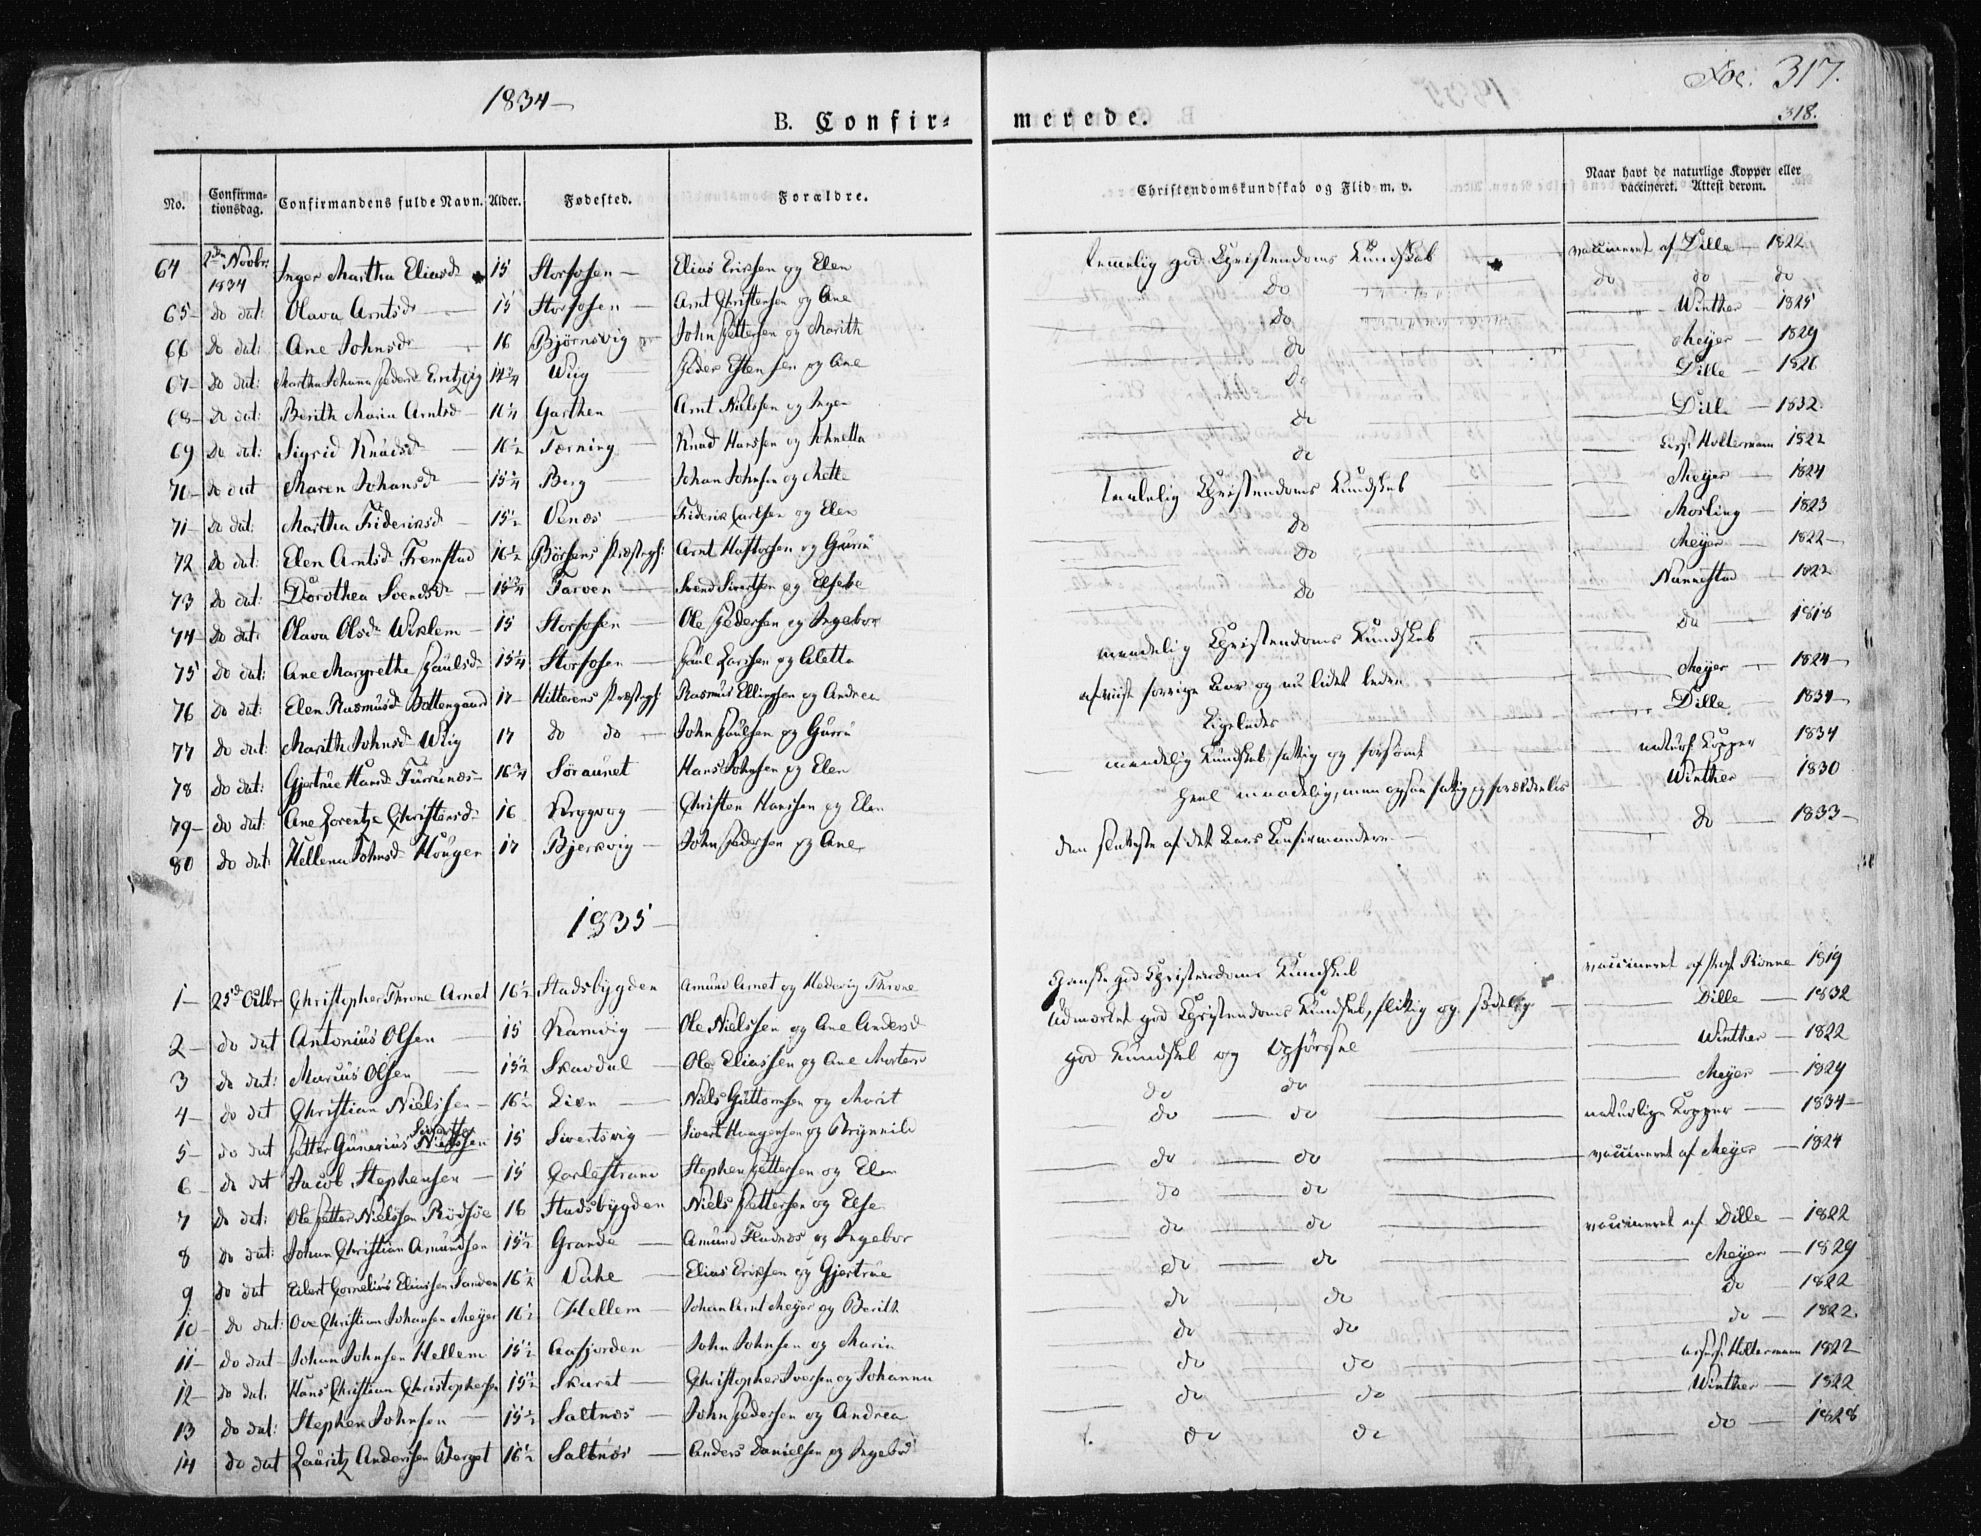 1834 —
Foe. 317.
318.
B. Confir-
merede.
No. Confirma-tionsdag. Confirmandens fulde Navn. Alder. Fødested. Forældre. Christendomskundskab og Flid m. v. Naar havt de naturlige Kopper eller vaccineret. Attest derom.
64 2den Novbr: 1834 Inger Martha Eliasd. 15 Storfosen — Elias Eriksen og Elen temelig god Christendoms Kundskab vaccineret af Dille — 1822
65 — do dat: Olava Arntsd. — 15 Storfosen — Arnt Christensen og Ane do do do do
66 do dat: Ane Johnsd. 16 Bjørnsvig John Pettersen og Marith do Winther — 1825
67 — do dat: Martha Johanna Pedersd. 14 3/4 Wiig Peder Estensen og Ane do Meÿer — 1829
68 — do dat: Berith Maria Arntsd — 16 1/4 Garthen Arnt Nielssen og Inger do Dille — 1826
69 do dat: Sigrid Knudsd. 16 1/2 Tærning Knud Hanssen og Johnetta do Dille — 1832
70 — do dat Maren Johansd. 15 3/4 Berg Johan Johnsen og Mette do Holtermann 1822
71 — do dat: Martha Frideriksd. — 15 1/2 Frederik Carlsen og Elen Christendoms Kundskab Meÿer — 1824
72 do dat: Elen Arntsd. Fremstad 16 1/2 Børsens Præstegj: Arnt Haftorsen og Gurru do Morling — 1823
73 do dat: Dorothea Svendsd. — 15 3/4 Tarven — Svend Sivertsen og Elsebe do Meÿer — 1822 —
74 — do dat: Olava Olsd. Wiklem — 15 Storfosen — Ole Pedersen og Ingebor do Nannestad 1822
75 do dat: Ane Margrethe Paulsd. 15 1/4 Storfosen — Paul Larssen og Aletta maadelig Christendoms Kundskab do 1818
76 do dat: Elen Rasmusd. Battengaard 17 — Hitterens Præstegj: Rasmus Ellingsen og Andrea afviist forrige Aar og nu lidet bedre Meÿer — 1824 —
77 do dat: Marith Johnsd. Wiig 17 do do — John Paulsen og Gurru Ligeledes Dille 1834 —
78 do dat: Gjertrue Hansd. Furrunæs — 16 3/4 Søraunet Hans Johnsen og Elen maadelig Kundskab, fattig og forsømt naturl. Kopper 1834
79 — do dat: Ane Lorentze Christensd — 16 Christen Hanssen og Elen heel maadelig, men ogsaa fattig og forældreløs Winther — 1830
80 do dat: Hellena Johnsd. Houger 17 Bjerkvig — John Pedersen og Ane den sletteste af det Aars Confirmander — do — 1833 —
1835 —
1 — 25de Octbr Christopher Throne Arnet 16 1/2 Stadsbygden Amund Arnet og Hedevig Throne Ganske god Christendoms Kundskab vaccineret af Rønne 1819
2 — do dat Antonius Olsen — 15 Ramvig — Ole Nielssen og Ane Andersd. Udmærket god Christendoms Kundskab, flittig og sædelig — Dille — 1832
3 do dat: Marcus Olsen — 15 1/2 Skavdal — Ole Eliassen og Ane Mortensd god Kundskab og Opførsel Winther — 1822
4 — do dat Christian Nielssen — 16 1/2 Lien — Niels Guttormsen og Marit do do Meÿer — 1829
5 — do dat Petter Gunerius Nielssen Sivertsen 15 Sivertsvig — Sivert Haagensen og Brynnild do — do naturlige Kopper — 1834 —
6 — do dat Jacob Stephensen — 15 Carlestrand Stephen Pettersen og Elen do — do vaccineret af Meÿer — 1824
7 do dat: Ole Petter Nielssen Rødsøe 16 Stadsbygden Niels Pettersen og Else do — do
8 do dat: Johan Christian Amundsen 15 1/2 Grande — Amund Fladnæs og Ingebor do — do vaccineret af Dille — 1822
9 do dat Eilert Cornelius Eliassen Sanden 16 1/2 — Elias Eriksen og Gjertrue do — do Meÿer — 1829
10 — do dat: Ove Christian Johansen Meÿer 16 1/2 Hellem — Johan Arnt Meÿer og Berith do do do — 1822
11 — do dat — Johan Johnsen Hellem 15 1/2 Aafjorden — John Johnsen og Maria do do do — 1822
12 — do dat: Hans Christian Christophersen 15 1/2 Skaret — Christopher Iversen og Johanna do do Holtermann 1822
13 do dat: Stephen Johnsen — 15 1/2 Saltnæs — John Pedersen og Andrea do do Winther — 1822
14 do dat Lauritz Anderssen Berget 16 1/2 Saltnæs — Anders Danielsen og Ingebor do do do — 1828